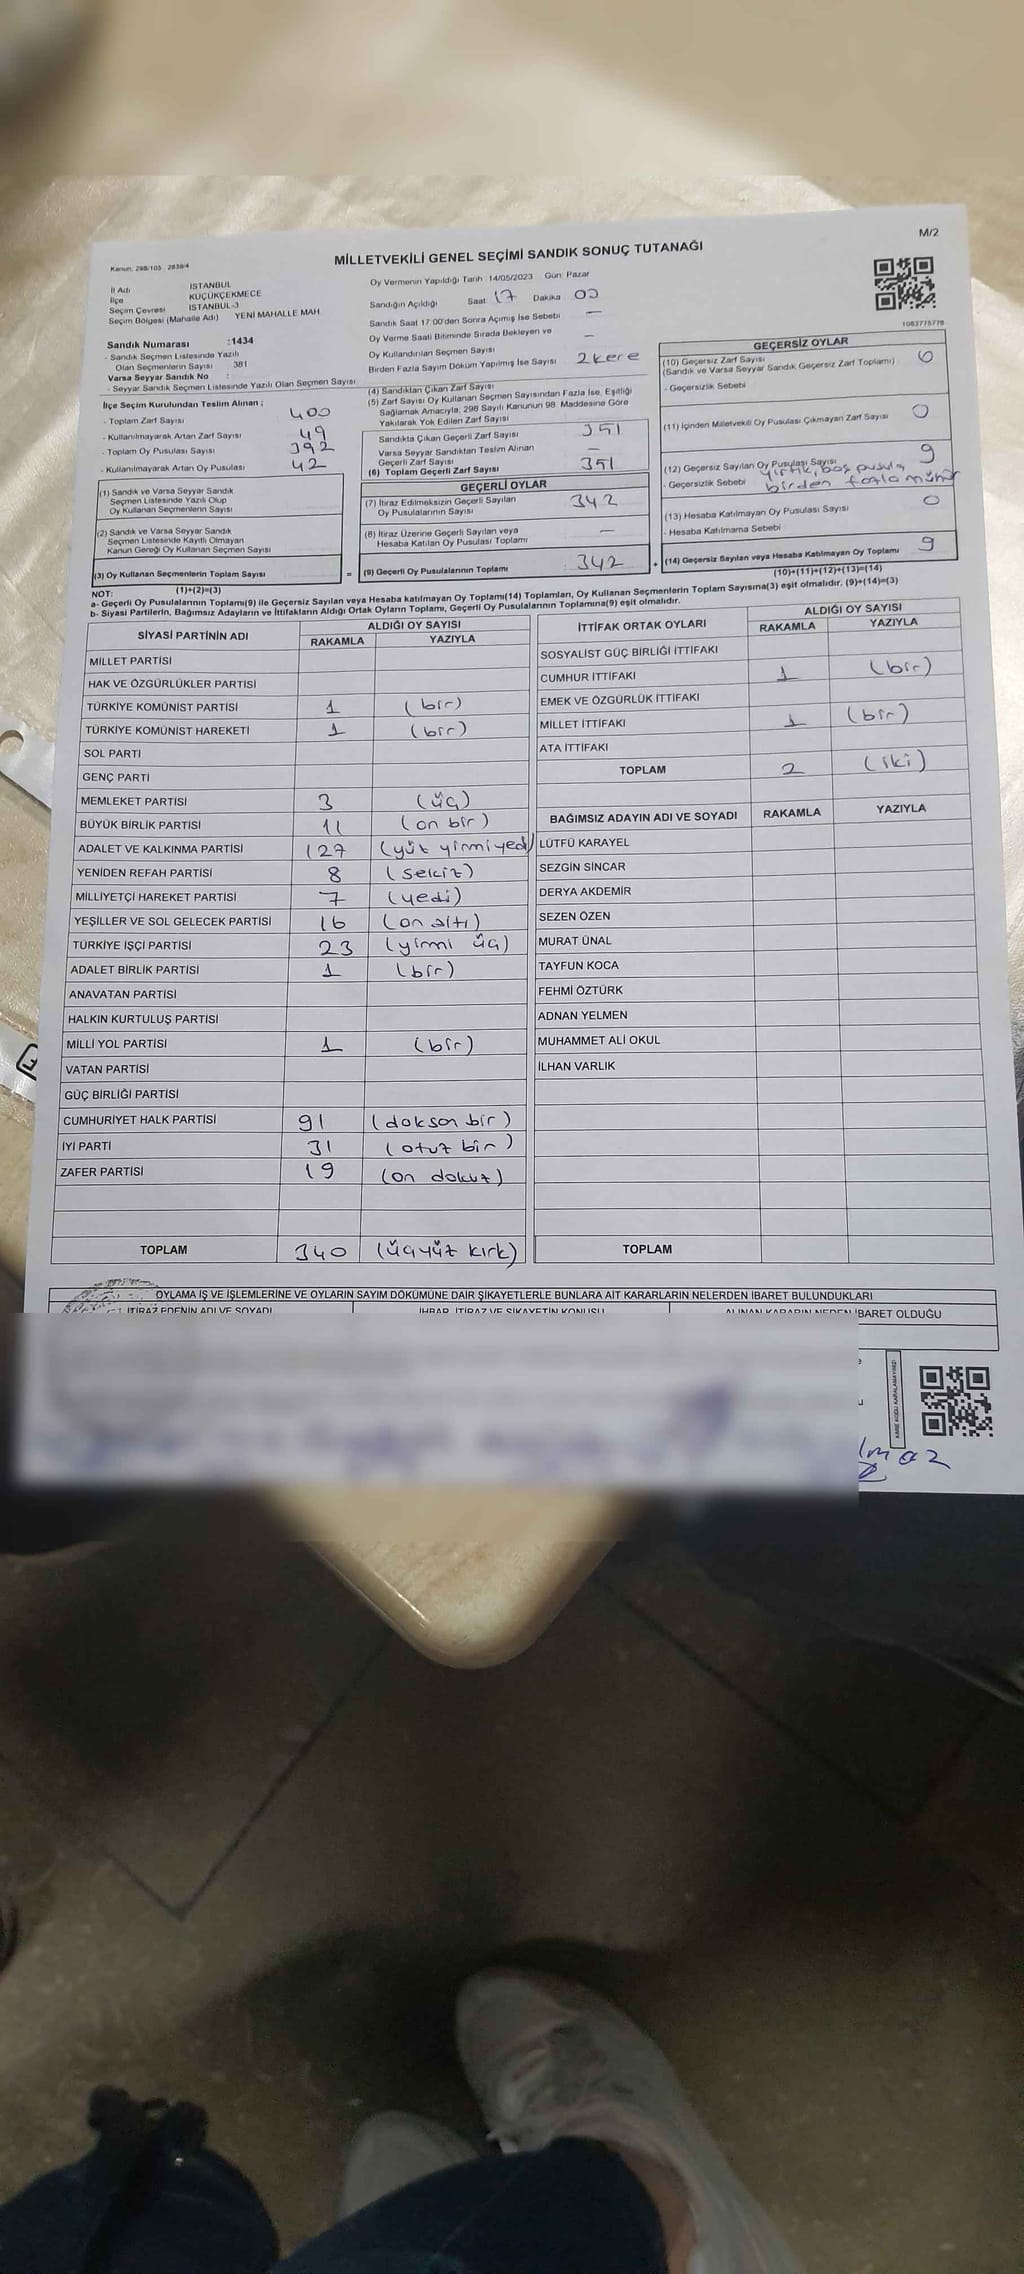 M/2
Kanun: 298/105 2839/4
MİLLETVEKİLİ GENEL SEÇİMİ SANDIK SONUÇ TUTANAĞI
İl Adı İSTANBUL
İlçe KÜÇÜKÇEKMECE
Seçim Çevresi İSTANBUL-3
Seçim Bölgesi (Mahalle Adı) YENİ MAHALLE MAH.
Sandık Numarası :1434
- Sandık Seçmen Listesinde Yazılı
Olan Seçmenlerin Sayısı 381
Varsa Seyyar Sandık No :
- Seyyar Sandık Seçmen Listesinde Yazılı Olan Seçmen Sayısı
Oy Vermenin Yapıldığı Tarih : 14/05/2023 Gün: Pazar
Sandığın Açıldığı Saat 17 Dakika 00
Sandık Saat 17:00'den Sonra Açımış İse Sebebi —
Oy Verme Saati Bitiminde Sırada Bekleyen ve
Oy Kullandırılan Seçmen Sayısı —
Birden Fazla Sayım Döküm Yapılmış İse Sayısı 2 kere
1063775776
İlçe Seçim Kurulundan Teslim Alınan ;
- Toplam Zarf Sayısı 400
- Kullanılmayarak Artan Zarf Sayısı 49
- Toplam Oy Pusulası Sayısı 392
- Kullanılmayarak Artan Oy Pusulası 42
(1) Sandık ve Varsa Seyyar Sandık
Seçmen Listesinde Yazılı Olup
Oy Kullanan Seçmenlerin Sayısı
(2) Sandık ve Varsa Seyyar Sandık
Seçmen Listesinde Kayıtlı Olmayan
Kanun Gereği Oy Kullanan Seçmen Sayısı
(3) Oy Kullanan Seçmenlerin Toplam Sayısı
(1)+(2)=(3)
(4) Sandıktan Çıkan Zarf Sayısı
(5) Zarf Sayısı Oy Kullanan Seçmen Sayısından Fazla İse, Eşitliği
Sağlamak Amacıyla, 298 Sayılı Kanunun 98. Maddesine Göre
Yakılarak Yok Edilen Zarf Sayısı
Sandıkta Çıkan Geçerli Zarf Sayısı 351
Varsa Seyyar Sandıktan Teslim Alınan
Geçerli Zarf Sayısı —
(6) Toplam Geçerli Zarf Sayısı 351
GEÇERLİ OYLAR
(7) İtiraz Edilmeksizin Geçerli Sayılan
Oy Pusulalarının Sayısı 342
(8) İtiraz Üzerine Geçerli Sayılan veya
Hesaba Katılan Oy Pusulası Toplamı —
= (9) Geçerli Oy Pusulalarının Toplamı 342 +
GEÇERSİZ OYLAR
(10) Geçersiz Zarf Sayısı 0
(Sandık ve Varsa Seyyar Sandık Geçersiz Zarf Toplamı)
- Geçersizlik Sebebi
(11) İçinden Milletvekili Oy Pusulası Çıkmayan Zarf Sayısı 0
(12) Geçersiz Sayılan Oy Pusulası Sayısı 9
- Geçersizlik Sebebi yırtık, boş pusula,
birden fazla mühür
(13) Hesaba Katılmayan Oy Pusulası Sayısı 0
- Hesaba Katılmama Sebebi
(14) Geçersiz Sayılan veya Hesaba Katılmayan Oy Toplamı 9
(10)+(11)+(12)+(13)=(14)
NOT:
a- Geçerli Oy Pusulalarının Toplamı(9) ile Geçersiz Sayılan veya Hesaba katılmayan Oy Toplamı(14) Toplamları, Oy Kullanan Seçmenlerin Toplam Sayısına(3) eşit olmalıdır. (9)+(14)=(3)
b- Siyasi Partilerin, Bağımsız Adayların ve İttifakların Aldığı Ortak Oyların Toplamı, Geçerli Oy Pusulalarının Toplamına(9) eşit olmalıdır.
SİYASİ PARTİNİN ADI ALDIĞI OY SAYISI
RAKAMLA YAZIYLA
MİLLET PARTİSİ
HAK VE ÖZGÜRLÜKLER PARTİSİ
TÜRKİYE KOMÜNİST PARTİSİ 1 (bir)
TÜRKİYE KOMÜNİST HAREKETİ 1 (bir)
SOL PARTİ
GENÇ PARTİ
MEMLEKET PARTİSİ 3 (üç)
BÜYÜK BİRLİK PARTİSİ 11 (on bir)
ADALET VE KALKINMA PARTİSİ 127 (yüz yirmi yedi)
YENİDEN REFAH PARTİSİ 8 (sekiz)
MİLLİYETÇİ HAREKET PARTİSİ 7 (yedi)
YEŞİLLER VE SOL GELECEK PARTİSİ 16 (on altı)
TÜRKİYE İŞÇİ PARTİSİ 23 (yirmi üç)
ADALET BİRLİK PARTİSİ 1 (bir)
ANAVATAN PARTİSİ
HALKIN KURTULUŞ PARTİSİ
MİLLİ YOL PARTİSİ 1 (bir)
VATAN PARTİSİ
GÜÇ BİRLİĞİ PARTİSİ
CUMHURİYET HALK PARTİSİ 91 (doksan bir)
İYİ PARTİ 31 (otuz bir)
ZAFER PARTİSİ 19 (on dokuz)
TOPLAM 340 (üçyüz kırk)
İTTİFAK ORTAK OYLARI ALDIĞI OY SAYISI
RAKAMLA YAZIYLA
SOSYALİST GÜÇ BİRLİĞİ İTTİFAKI
CUMHUR İTTİFAKI 1 (bir)
EMEK VE ÖZGÜRLÜK İTTİFAKI
MİLLET İTTİFAKI 1 (bir)
ATA İTTİFAKI
TOPLAM 2 (iki)
BAĞIMSIZ ADAYIN ADI VE SOYADI RAKAMLA YAZIYLA
LÜTFÜ KARAYEL
SEZGİN SİNCAR
DERYA AKDEMİR
SEZEN ÖZEN
MURAT ÜNAL
TAYFUN KOCA
FEHMİ ÖZTÜRK
ADNAN YELMEN
MUHAMMET ALİ OKUL
İLHAN VARLIK
TOPLAM
OYLAMA İŞ VE İŞLEMLERİNE VE OYLARIN SAYIM DÖKÜMÜNE DAİR ŞİKAYETLERLE BUNLARA AİT KARARLARIN NELERDEN İBARET BULUNDUKLARI
İTİRAZ EDENİN ADI VE SOYADI İHBAR, İTİRAZ VE ŞİKAYETİN KONUSU ALINAN KARARIN NEDEN İBARET OLDUĞU